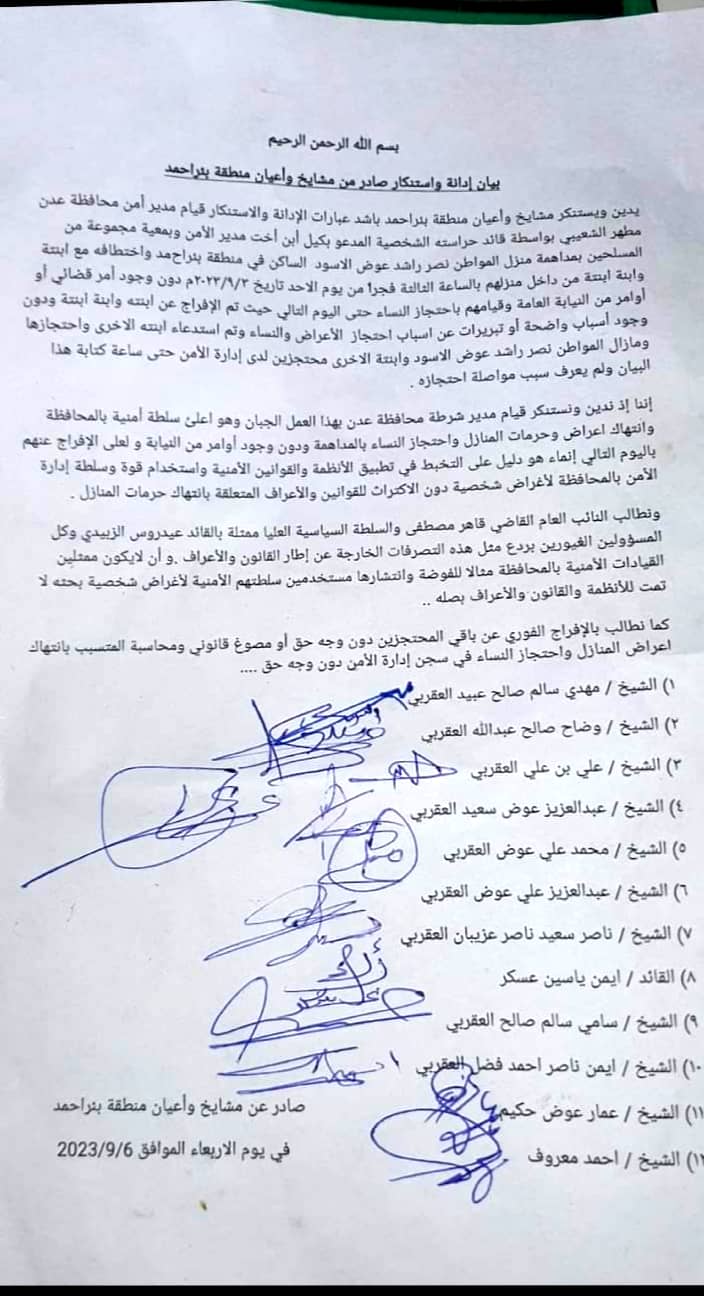 بسم الله الرحمن الرحيم
بيان إدانة واستنكار صادر من مشايخ وأعيان منطقة بئراحمد
يدين ويستنكر مشايخ وأعيان منطقة بئراحمد باشد عبارات الإدانة والاستنكار قيام مدير أمن محافظة عدن
مطهر الشعيبي بواسطة قائد حراسته الشخصية المدعو بكيل أبن أخت مدير الأمن وبمعية مجموعة من
المسلحين بمداهمة منزل المواطن نصر راشد عوض الاسود الساكن في منطقة بئراحمد واختطافه مع ابنتة
وابنة ابنتة من داخل منزلهم بالساعة الثالثة فجراً من يوم الاحد تاريخ ٢٠٢٣/٩/٣م دون وجود أمر قضائي أو
أوامر من النيابة العامة وقيامهم باحتجاز النساء حتى اليوم التالي حيث تم الإفراج عن ابنته وابنة ابنتة ودون
وجود أسباب واضحة أو تبريرات عن اسباب احتجاز الأعراض والنساء وتم استدعاء ابنته الاخرى واحتجازها
ومازال المواطن نصر راشد عوض الاسود وابنتة الاخرى محتجزين لدى إدارة الأمن حتى ساعة كتابة هذا
البيان ولم يعرف سبب مواصلة احتجازه .
إننا إذ ندين ونستنكر قيام مدير شرطة محافظة عدن بهذا العمل الجبان وهو اعلئ سلطة أمنية بالمحافظة
وانتهاك اعراض وحرمات المنازل واحتجاز النساء بالمداهمة ودون وجود أوامر من النيابة و لعلى الإفراج عنهم
باليوم التالي إنماء هو دليل على التخبط في تطبيق الأنظمة والقوانين الأمنية واستخدام قوة وسلطة إدارة
الأمن بالمحافظة لأغراض شخصية دون الاكتراث للقوانين والأعراف المتعلقة بانتهاك حرمات المنازل .
ونطالب النائب العام القاضي قاهر مصطفى والسلطة السياسية العليا ممثلة بالقائد عيدروس الزبيدي وكل
المسؤولين الغيورين بردع مثل هذه التصرفات الخارجة عن إطار القانون والأعراف .و أن لايكون ممثلين
القيادات الأمنية بالمحافظة مثالا للفوضة وانتشارها مستخدمين سلطتهم الأمنية لأغراض شخصية بحته لا
تمت للأنظمة والقانون والأعراف بصله ..
كما نطالب بالإفراج الفوري عن باقي المحتجزين دون وجه حق أو مصوغ قانوني ومحاسبة المتسبب بانتهاك
اعراض المنازل واحتجاز النساء في سجن إدارة الأمن دون وجه حق ....
١) الشيخ / مهدي سالم صالح عبيد العقربي
٢) الشيخ / وضاح صالح عبدالله العقربي
٣) الشيخ / علي بن علي العقربي
٤) الشيخ / عبدالعزيز عوض سعيد العقربي
٥) الشيخ / محمد علي عوض العقربي
٦) الشيخ / عبدالعزيز علي عوض العقربي
٧) الشيخ / ناصر سعيد ناصر عزيبان العقربي
٨) القائد / ايمن ياسين عسكر
٩) الشيخ / سامي سالم صالح العقربي
١٠) الشيخ / ايمن ناصر احمد فضل العقربي
١١) الشيخ / عمار عوض حكيم
١٢) الشيخ / احمد معروف
صادر عن مشايخ وأعيان منطقة بئراحمد
في يوم الاربعاء الموافق 2023/9/6